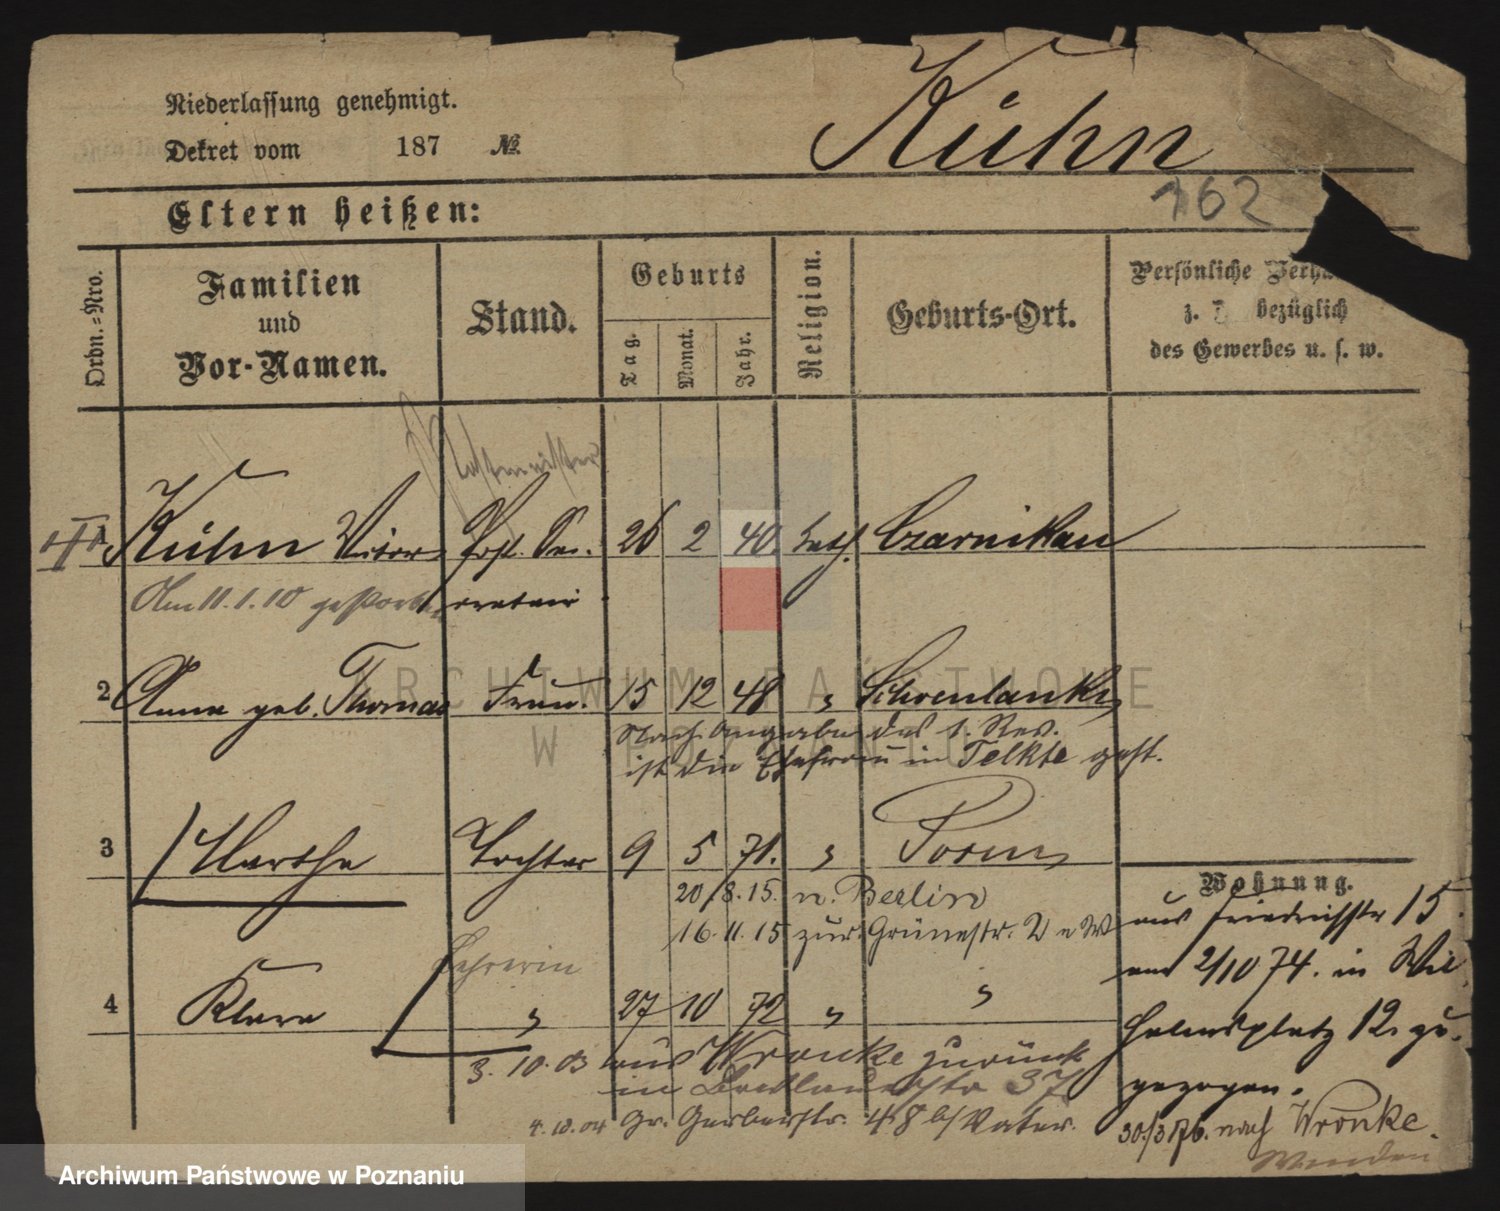 Niederlassung genehmigt.
Dekret vom 187 №.
Kuhn
162
Eltern heißen:
Ordn.=Nro.
Familien
und
Vor-Namen.
Stand.
Geburts
Tag.
Monat.
Jahr.
Religion.
Geburts-Ort.
Persönliche Verh
z. bezüglich
des Gewerbes u. s. w.
Postmeister
1 Kuhn Victor Post. Sec. 26 2 40 kath. Czarnikau
Am 11.1.10 gestorben cretair
2 Anna geb. Thomas Frau. 15 12 48 " Schoenlanke
Nach Angabe des 1. Rev.
ist die Ehefrau in Telkte gest.
3 Martha Tochter 9 5 71. " Posen
20/8.15. n. Berlin
16.11.15 zur. Grünestr. 2
Lehrerin
4 Klara " 27 10 72 " "
3.10.03 aus Wronke zurück
in 37
4.10.04 Gr. Gerberstr. 48 b/Vater.
Wohnung.
aus Friedrichstr 15.
am 2/10 74. in Wil
helmsplatz 12. zu.
gezogen.
30./3 76. nach Wronke.
ARCHIWUM PAŃSTWOWE
W POZNANIU
Archiwum Państwowe w Poznaniu